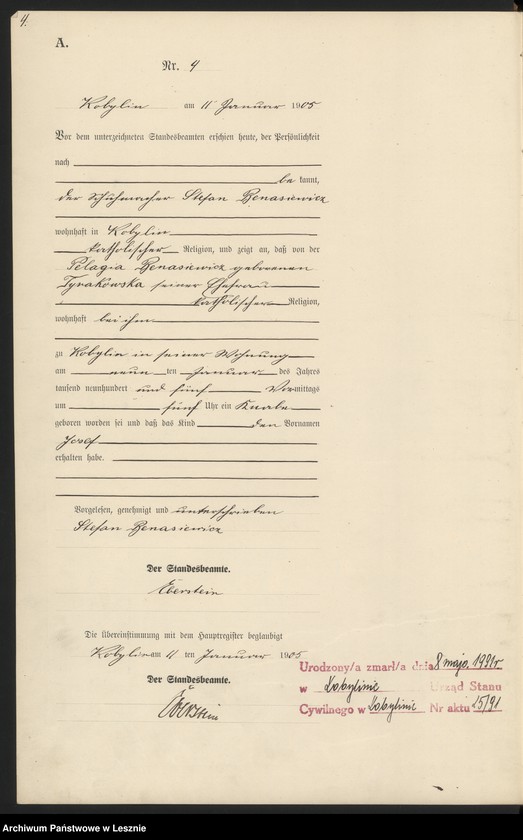 4.
A.
Nr. 4
Kobylin am 11 Januar 1905
Vor dem unterzeichneten Standesbeamten erschien heute, der Persönlichkeit
nach
be kannt,
der Schuhmacher Stefan Benasiewicz
wohnhaft in Kobylin
katholischer Religion, und zeigt an, daß von der
Pelagia Benasiewicz geborenen
Tyrakowska seiner Ehefrau
katholischer Religion,
wohnhaft bei ihm
zu Kobylin in seiner Wohnung
am neun ten Januar des Jahres
tausend neunhundert und fünf Vormittags
um fünf Uhr ein Knabe
geboren worden sei und daß das Kind den Vornamen
Josef
erhalten habe.
Vorgelesen, genehmigt und unterschrieben
Stefan Benasiewicz
Der Standesbeamte.
Eberstein
Die Übereinstimmung mit dem Hauptregister beglaubigt
Kobylin am 11 ten Januar 1905
Der Standesbeamte.
Eberstein
Urodzony/a zmarł/a dnia 8 maja 1991r
w Kobylinie Urząd Stanu
Cywilnego w Kobylinie Nr aktu 15/91
Archiwum Państwowe w Lesznie